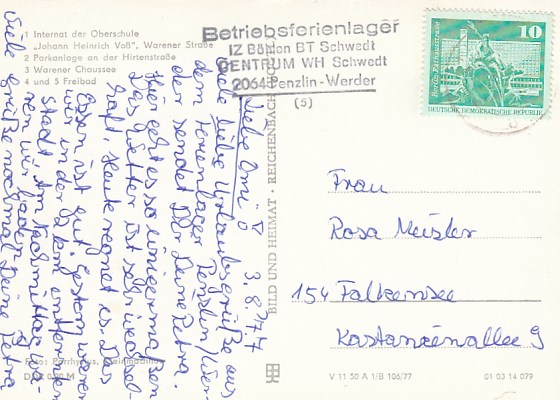 1 Internat der Oberschule
„Johann Heinrich Voß", Warener Straße
2 Parkanlage an der Hirtenstraße
3 Warener Chaussee
4 und 5 Freibad
Betriebsferienlager
IZ Böllen BT Schwedt
CENTRUM WH Schwedt
2064 Penzlin-Werder
(5)
10
DEUTSCHE DEMOKRATISCHE REPUBLIK
Liebe Omi! 3.8.77
Viele liebe Urlaubsgrüße aus
dem Ferienlager Penzlin/Wer-
der sendet Dir Deine Petra.
Hier geht es so einigermaßen
Das Wetter ist sehr wechsel-
haft. Heute regnet es. Das
Essen ist gut. Gestern waren
wir in der 2 km entfernten
Stadt. Am Nachmittag wa-
ren wir baden
Viele Grüße nochmal Deine Petra
BILD UND HEIMAT · REICHENBACH
Frau
Rosa Meisler
154 Falkensee
Kastanienallee 9
Foto:
V 11 50 A 1/B 106/77
01 03 14 079